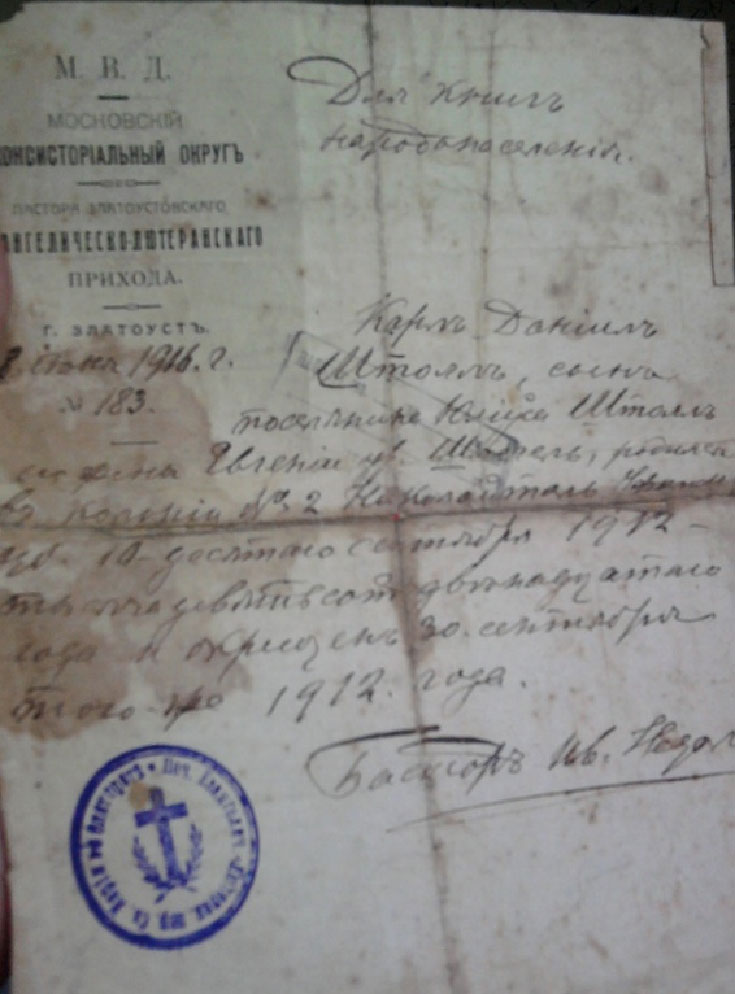 М. В. Д.
МОСКОВСКІЙ
КОНСИСТОРІАЛЬНЫЙ ОКРУГЪ
ПАСТОРА ЗЛАТОУСТОВСКАГО
ЕВАНГЕЛИЧЕСКО-ЛЮТЕРАНСКАГО
ПРИХОДА.
Г. ЗЛАТОУСТЪ.
1916. г.
№ 183.
Для книгъ
народонаселенія.
Карлъ Даніилъ
Штолль, сынъ
поселянина Штолль
Евгеніи ур. родился
въ колоніи № 2 Николайталь
10-десятаго сентября 1912-
тысяча девятьсотъ двѣнадцатаго
года и окрещенъ 30. сентября
того-же 1912. года.
Пасторъ Ив.